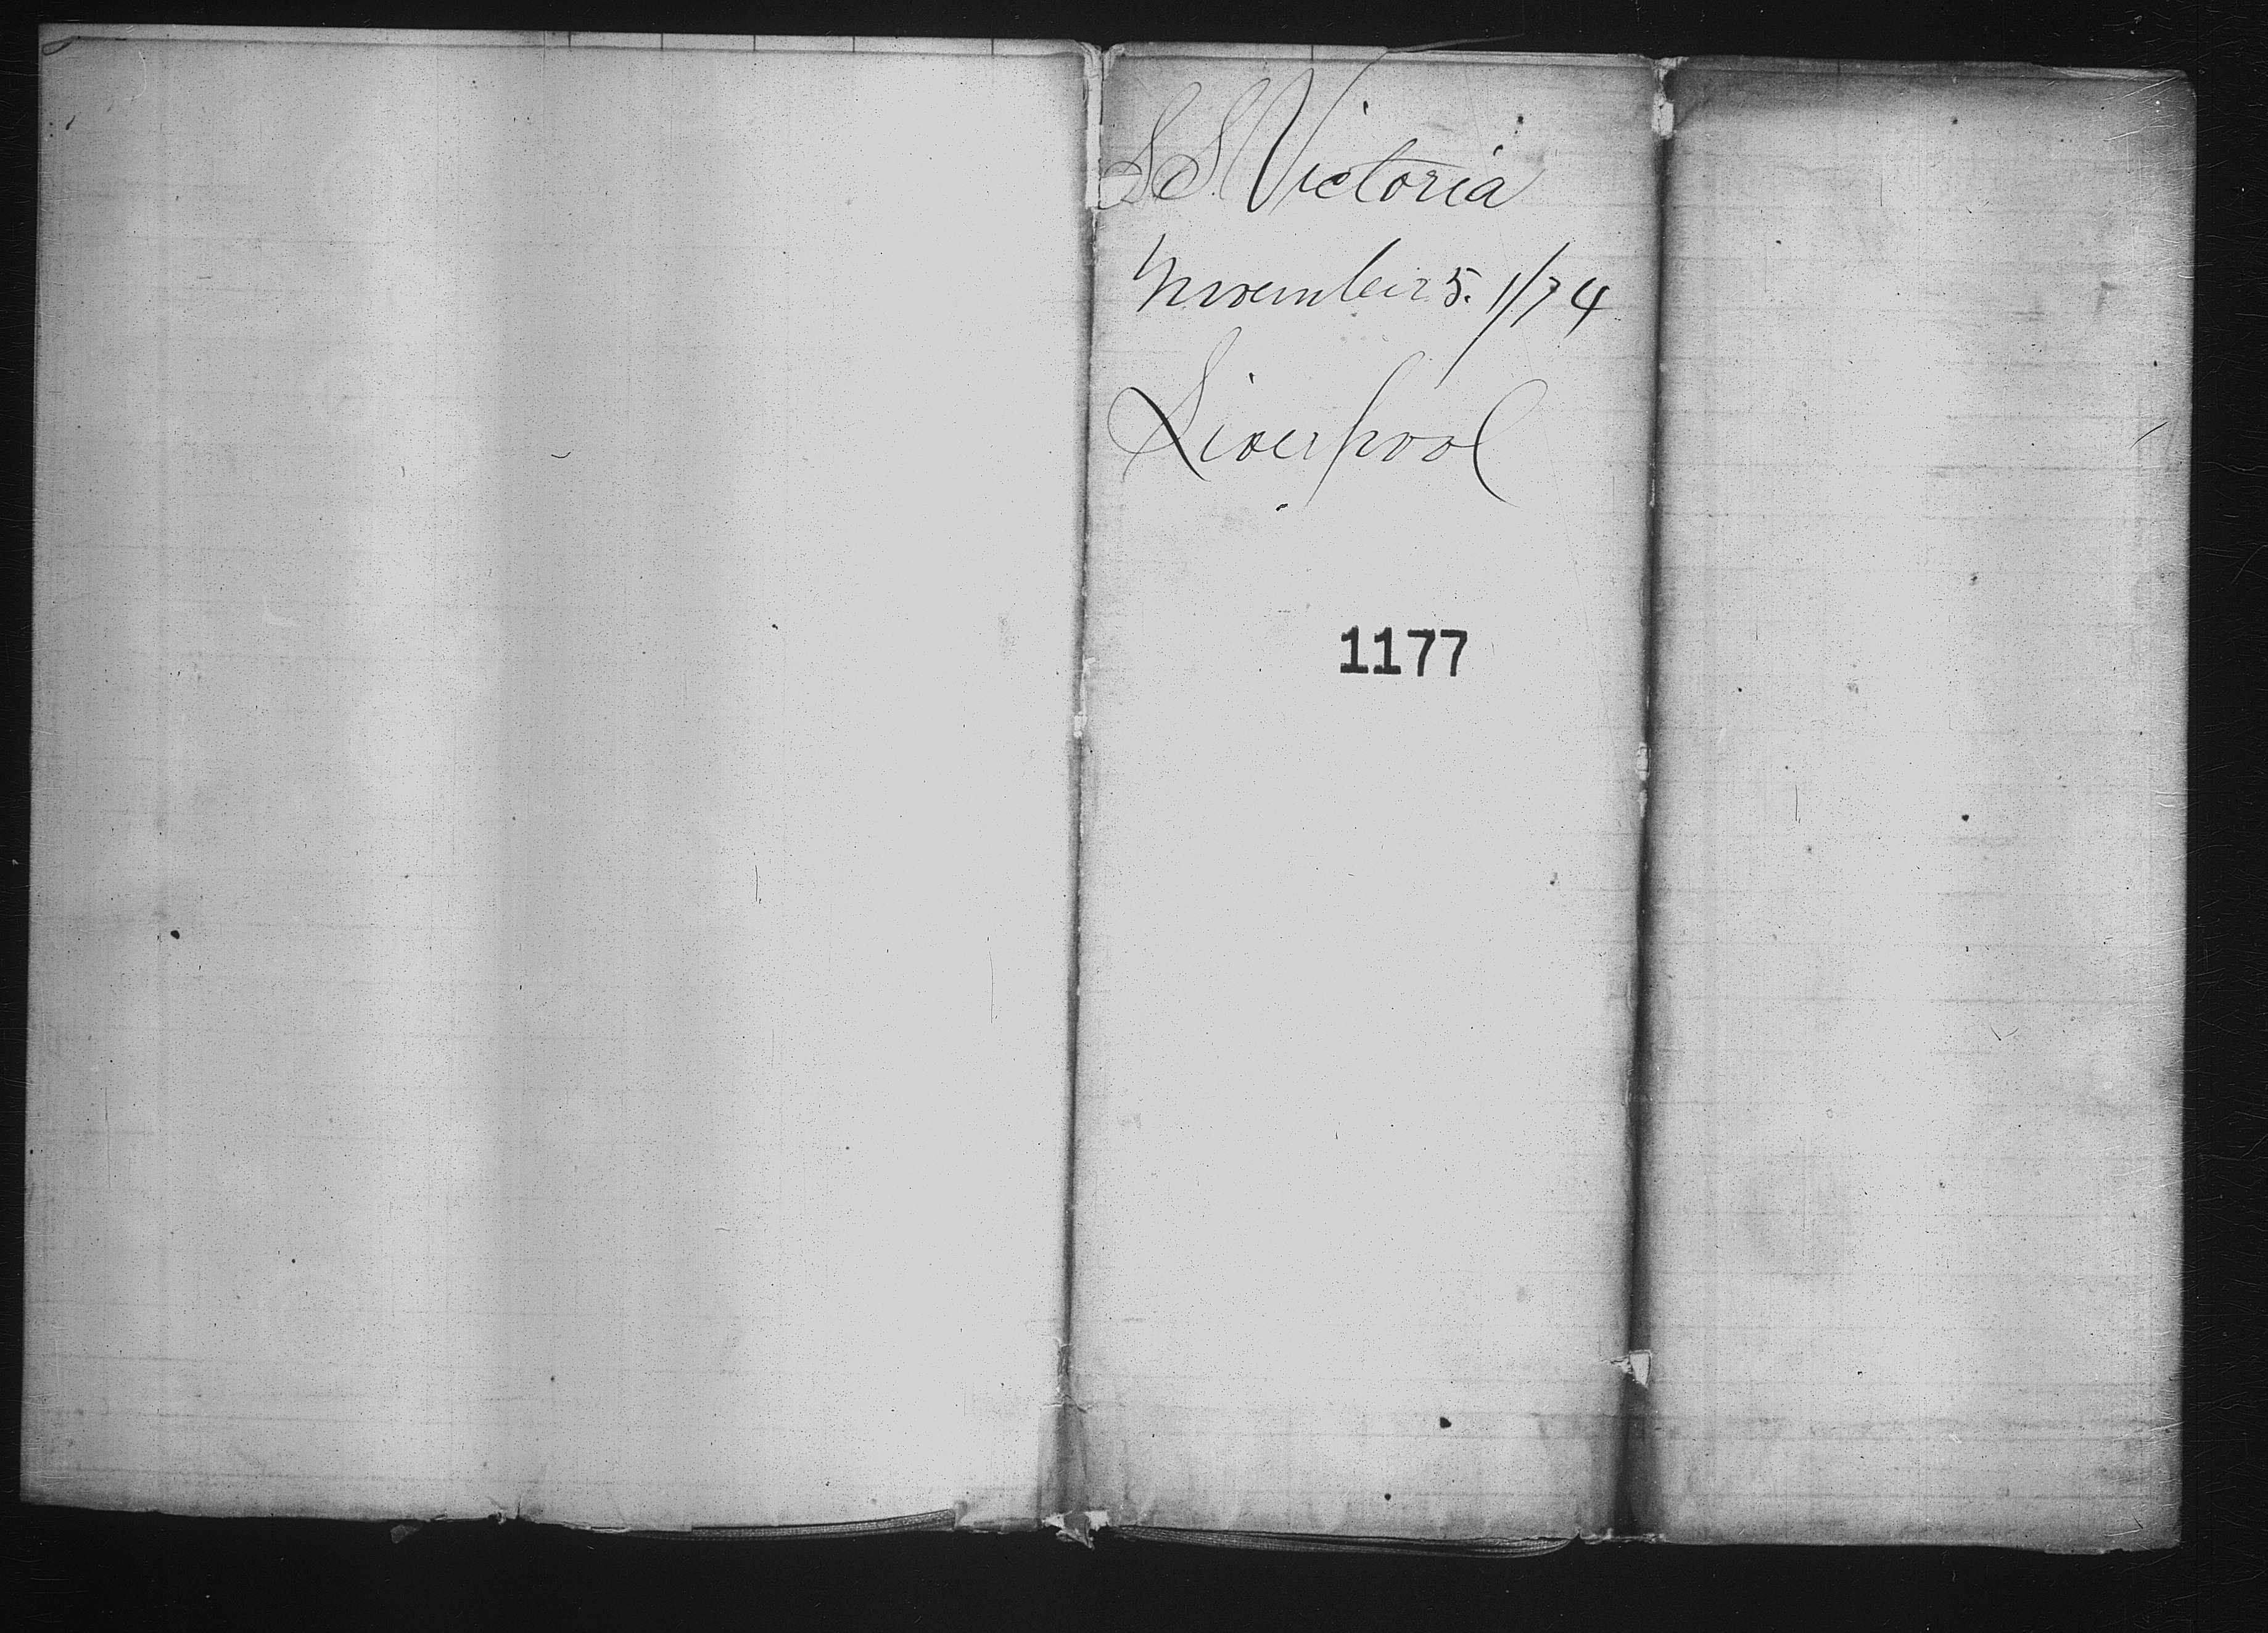 SS. Victoria
November 5. 1/74
Liverpool
1177